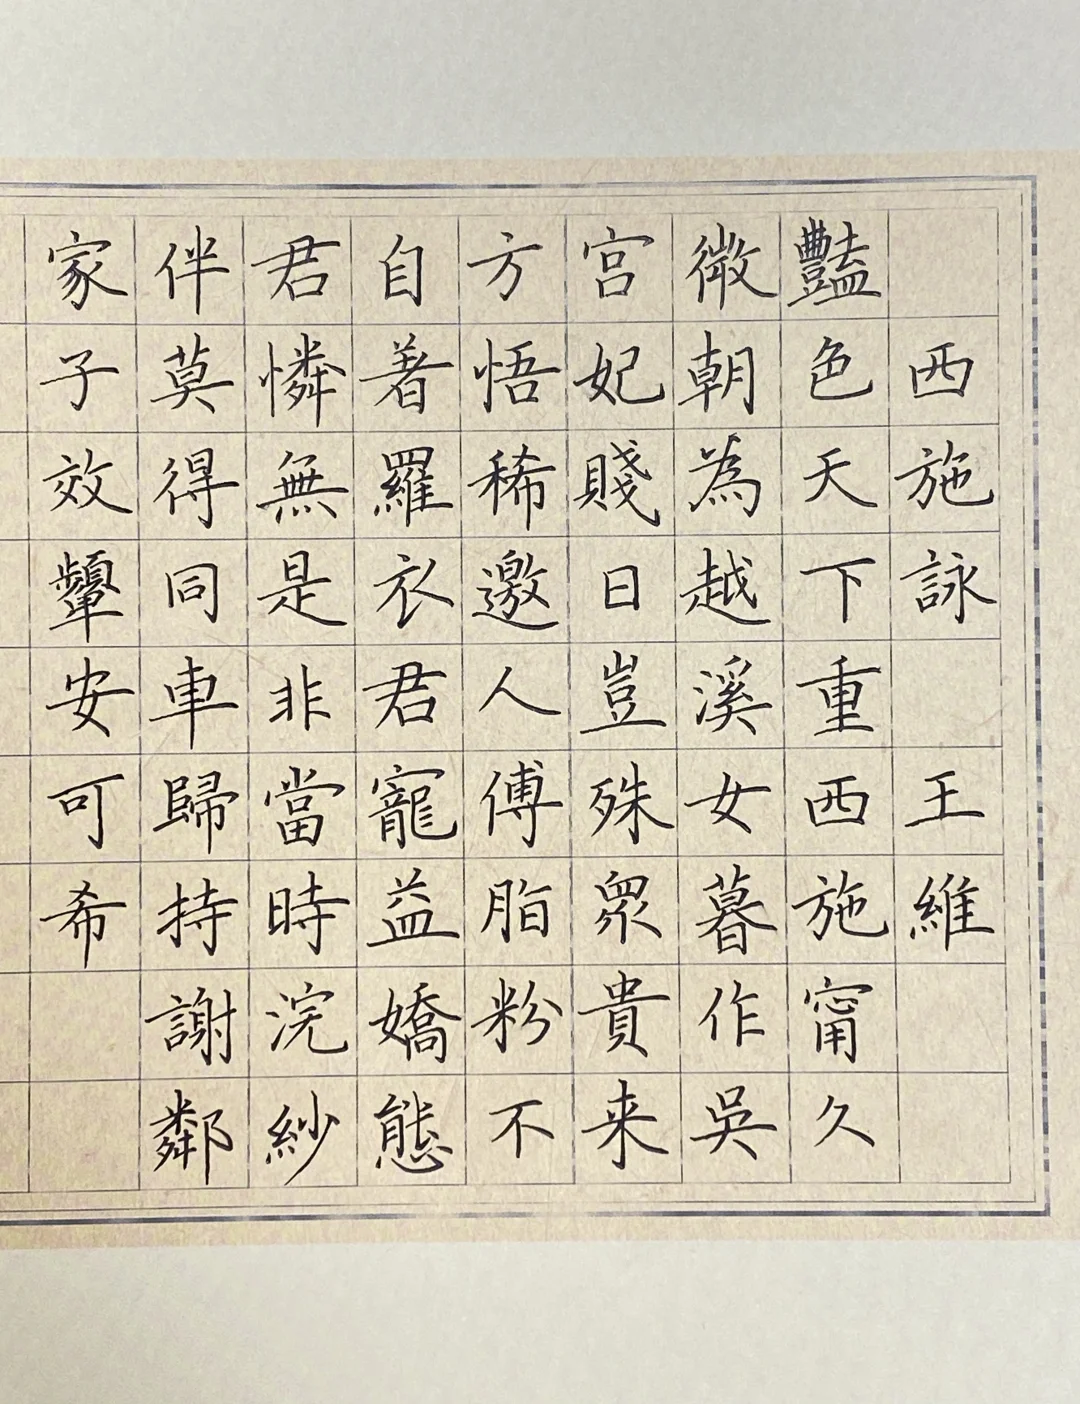 西施詠 王維
豔色天下重西施甯久
微朝為越溪女暮作吳
宮妃賤日豈殊眾貴来
方悟稀邀人傅脂粉不
自著羅衣君寵益嬌態
君憐無是非當時浣紗
伴莫得同車歸持謝鄰
家子效顰安可希